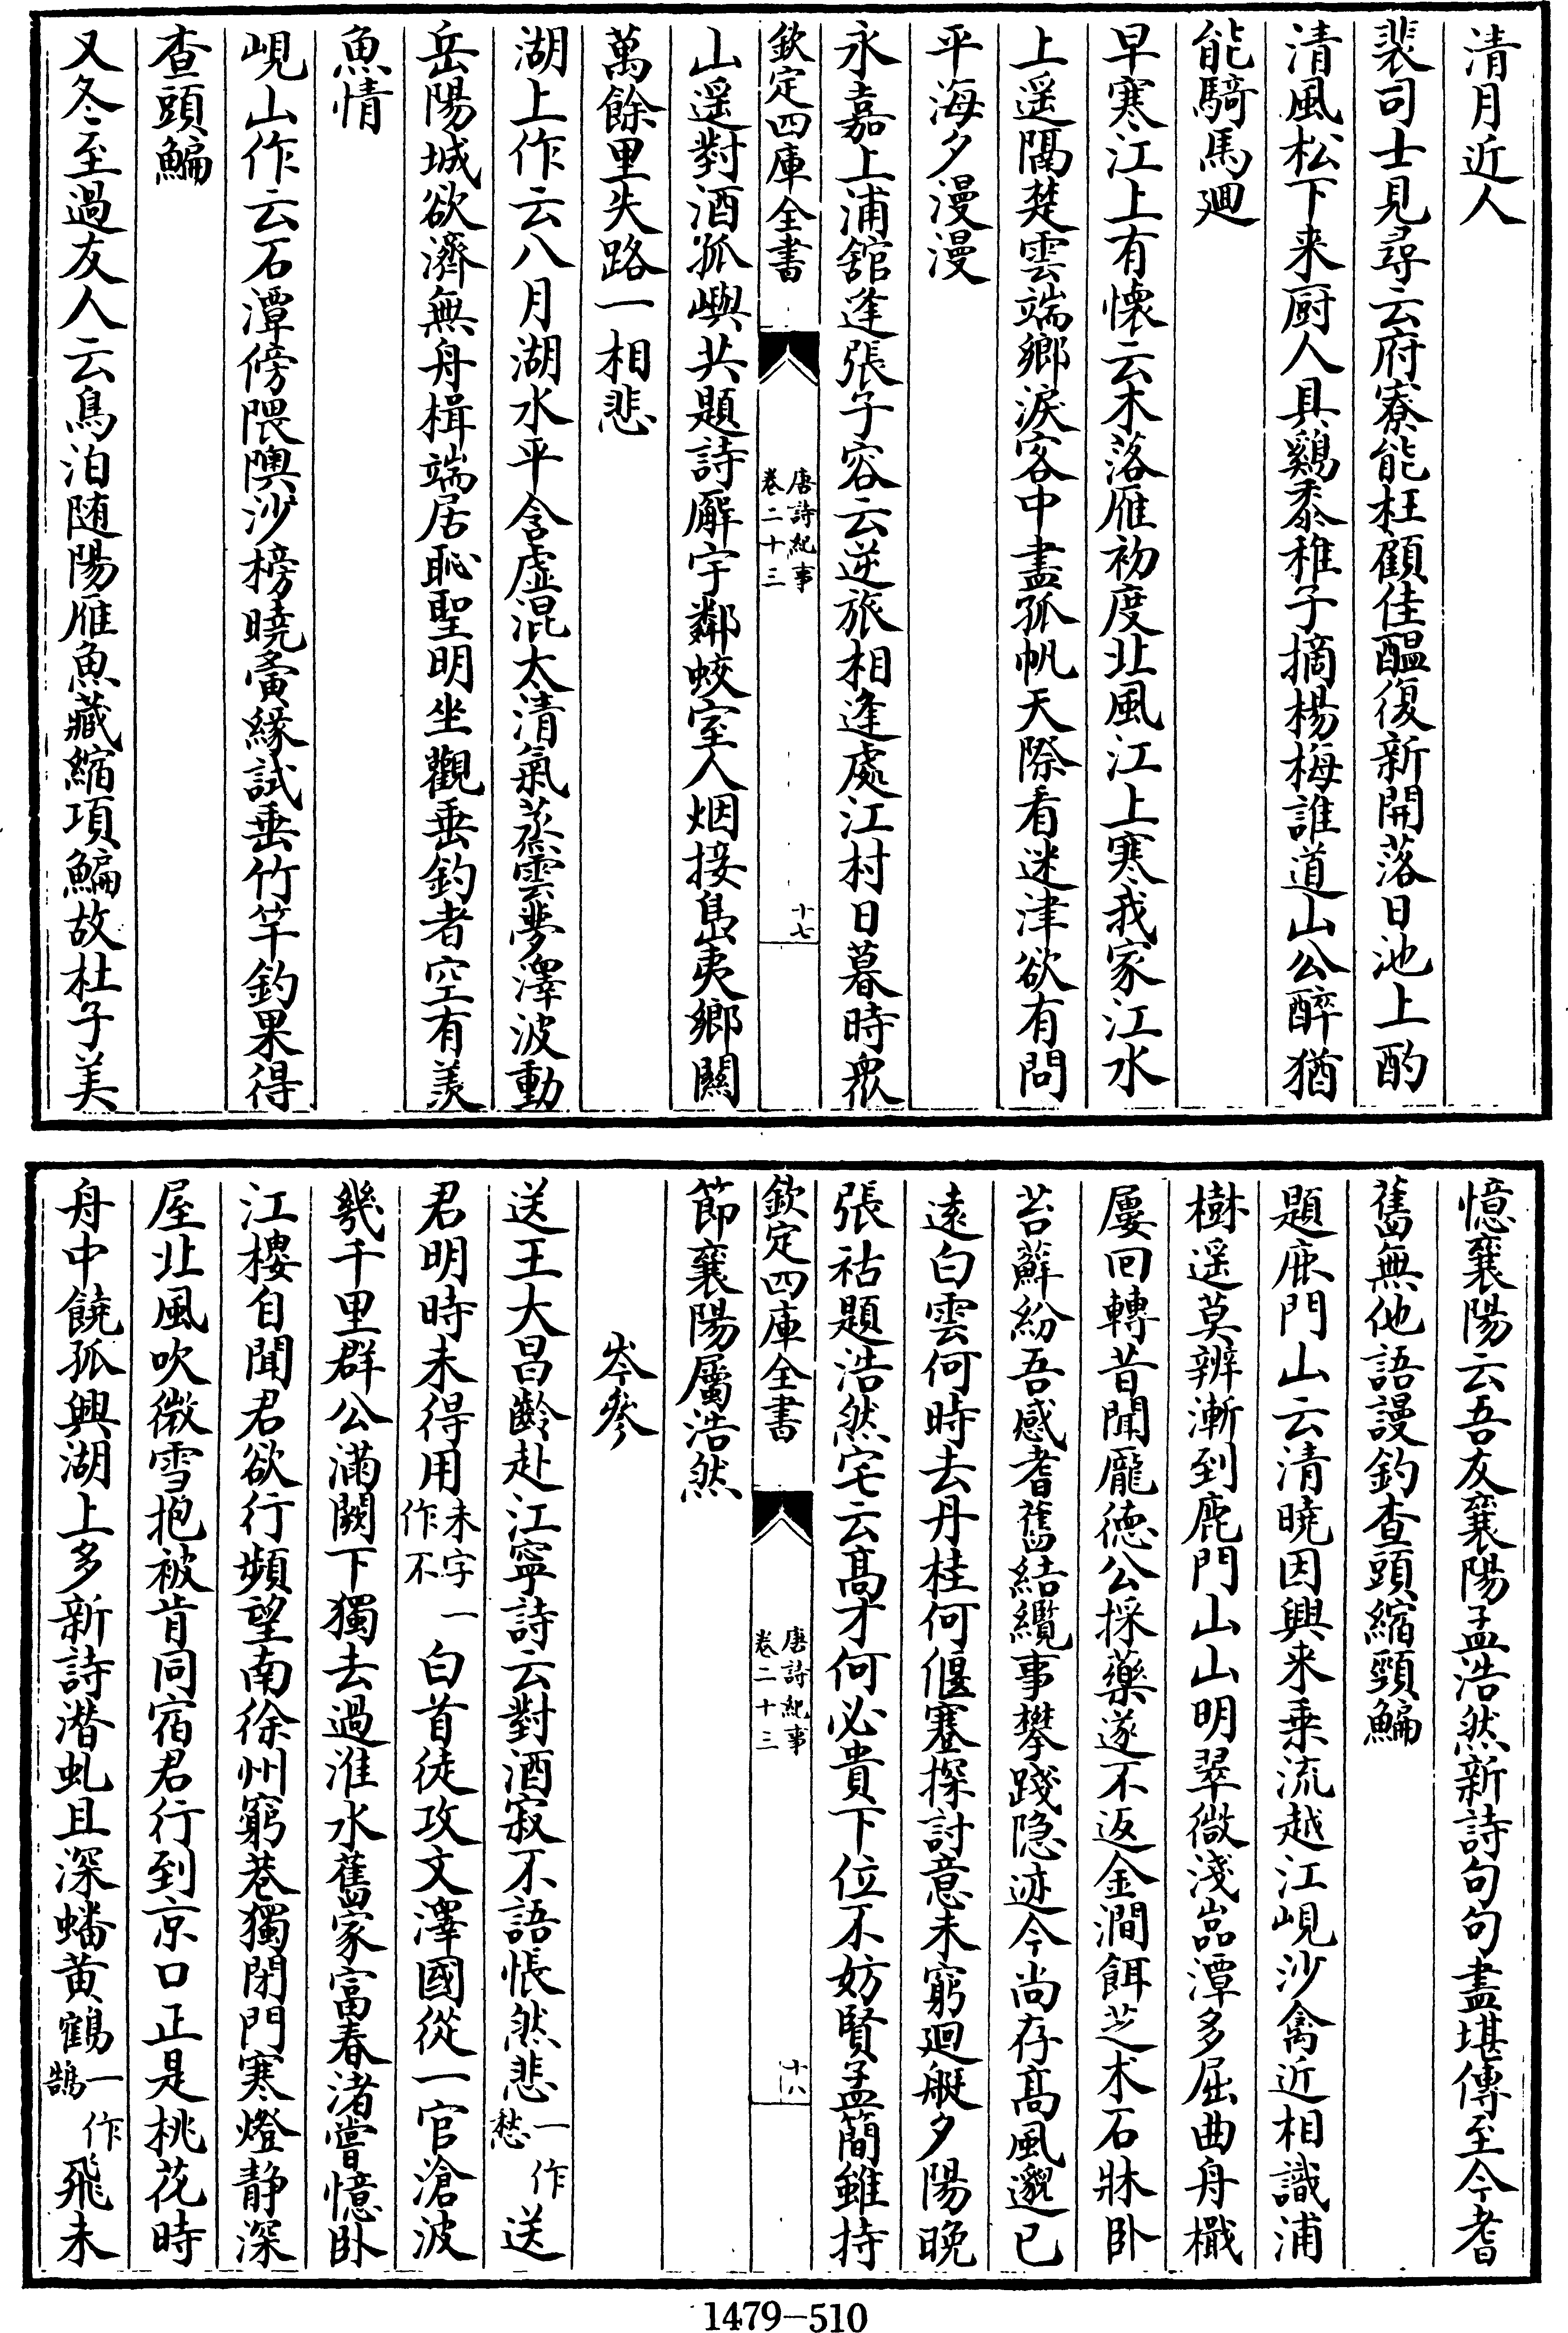 清月近人
裴司士見尋云府寮能枉顧佳醖復新開落日池上酌
清風松下来厨人具鷄黍稚子摘楊梅誰道山公醉猶
能騎馬廻
早寒江上有懷云木落雁初度北風江上寒我家江水
上遥隔楚雲端鄉淚客中盡孤帆天際看迷津欲有問
平海夕漫漫
永嘉上浦舘逢張子容云逆旅相逢處江村日暮時衆
欽定四庫全書
唐詩紀事
卷二十三
十七
山遥對酒孤嶼共題詩廨宇鄰蛟室人烟接島夷鄉關
萬餘里失路一相悲
湖上作云八月湖水平含虚混太清氣蒸雲夢澤波動
岳陽城欲濟無舟楫端居恥聖明坐觀垂釣者空有羨
魚情
峴山作云石潭傍隈隩沙榜曉夤緣試垂竹竿釣果得
查頭鯿
又冬至過友人云鳥泊随陽雁魚藏縮項鯿故杜子美
憶襄陽云吾友襄陽孟浩然新詩句句盡堪傳至今耆
舊無他語謾釣查頭縮頸鯿
題鹿門山云清曉因興来乗流越江峴沙禽近相識浦
樹遥莫辨漸到鹿門山山明翠微淺嵓潭多屈曲舟檝
屢回轉昔聞龐德公採藥遂不返金澗餌芝术石牀卧
苔蘚紛吾感耆舊結纜事攀踐隐迹今尚存髙風邈已
遠白雲何時去丹桂何偃蹇探討意未窮廻艇夕陽晚
張祜題浩然宅云髙才何必貴下位不妨賢孟簡雖持
欽定四庫全書
唐詩紀事
卷二十三
十八
節襄陽屬浩然
岑參
送王大昌齡赴江寧詩云對酒寂不語悵然悲一作愁送
君明時未得用未字一作不白首徒攻文澤國從一官滄波
幾千里群公滿闕下獨去過淮水舊家富春渚嘗憶卧
江樓自聞君欲行頻望南徐州窮巷獨閉門寒燈静深
屋北風吹微雪抱被肯同宿君行到京口正是桃花時
舟中饒孤興湖上多新詩潛虬且深蟠黄鶴一作鵠飛未
1479-510